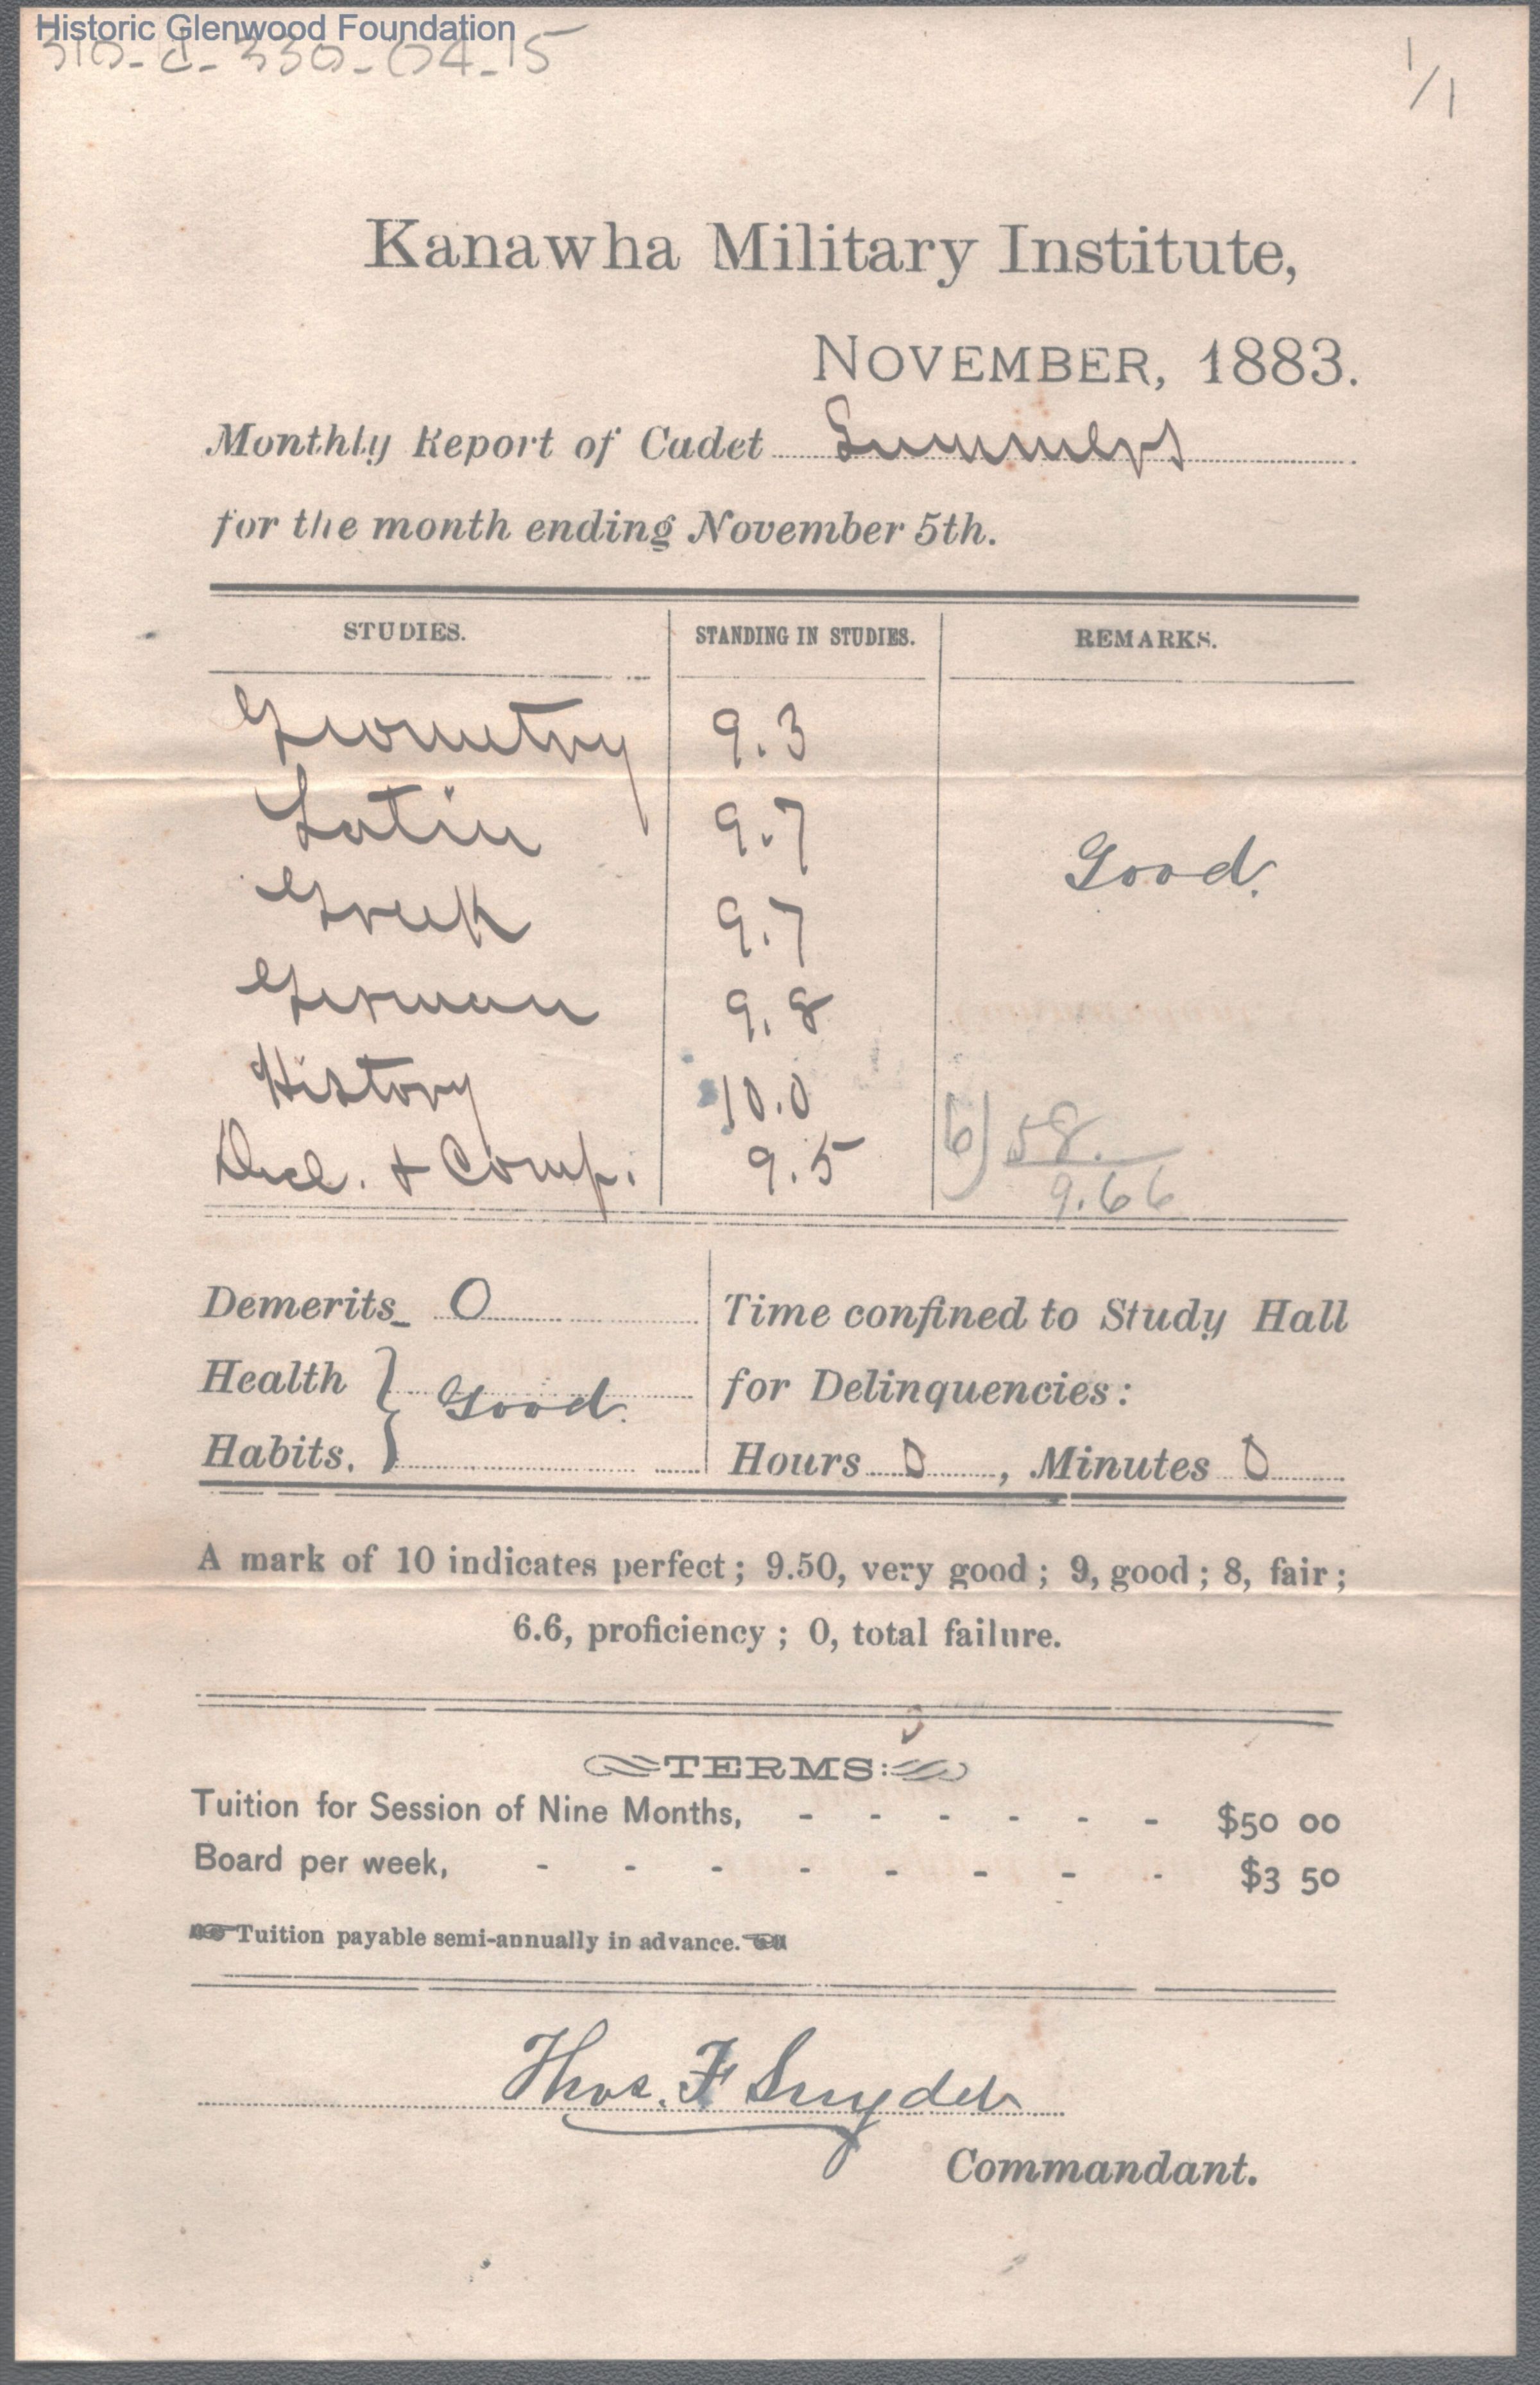 Historic Glenwood Foundation
310-d-330-04-15
1/1
Kanawha Military Institute,
NOVEMBER, 1883.
Monthly Report of Cadet Summers
for the month ending November 5th.
STUDIES. STANDING IN STUDIES. REMARKS.
Geometry 9.3
Latin 9.7
Good.
Greek 9.7
German 9.8
History 10.0
Decl. & Comp. 9.5
6) 58.
9.66
Demerits 0
Health } Good.
Habits.
Time confined to Study Hall
for Delinquencies:
Hours 0, Minutes 0
A mark of 10 indicates perfect; 9.50, very good; 9, good; 8, fair;
6.6, proficiency; 0, total failure.
TERMS:
Tuition for Session of Nine Months, - - - - - - $50 00
Board per week, - - - - - - - - $3 50
Tuition payable semi-annually in advance.
Thos. F Snyder
Commandant.